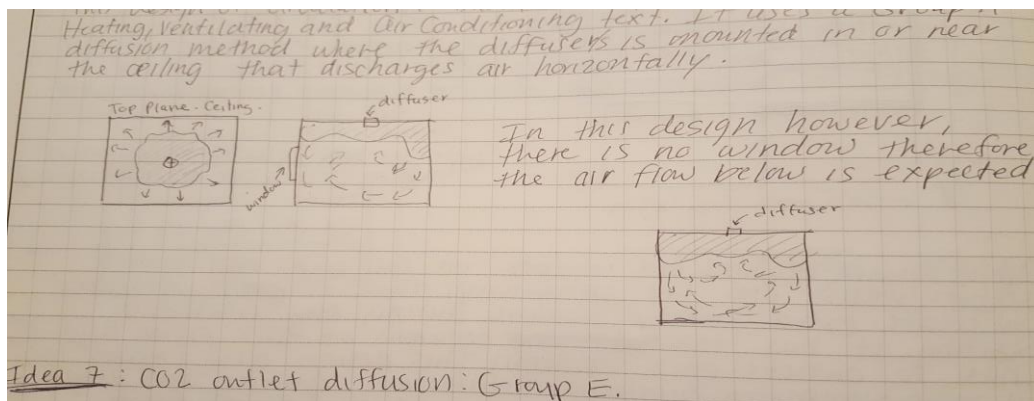 Heating, Ventilating and Air Conditioning text. It uses a Group A
diffusion method where the diffusers is mounted in or near
the ceiling that discharges air horizontally.
Top Plane - Ceiling.
diffuser
window
In this design however,
there is no window therefore
the air flow below is expected
diffuser
Idea 7: CO2 outlet diffusion: Group E.